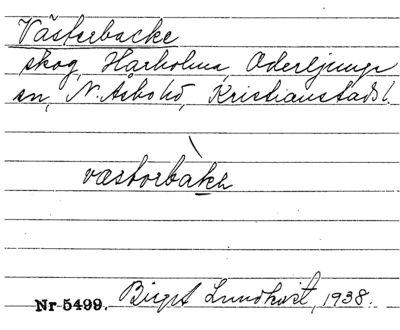 Västerbacke
skog, Harholma, Oderljunga
sn, N. Åsbo hd, Kristianstads l.
västorbakɘ
Nr 5499. Birgit Lundkvist, 1938.